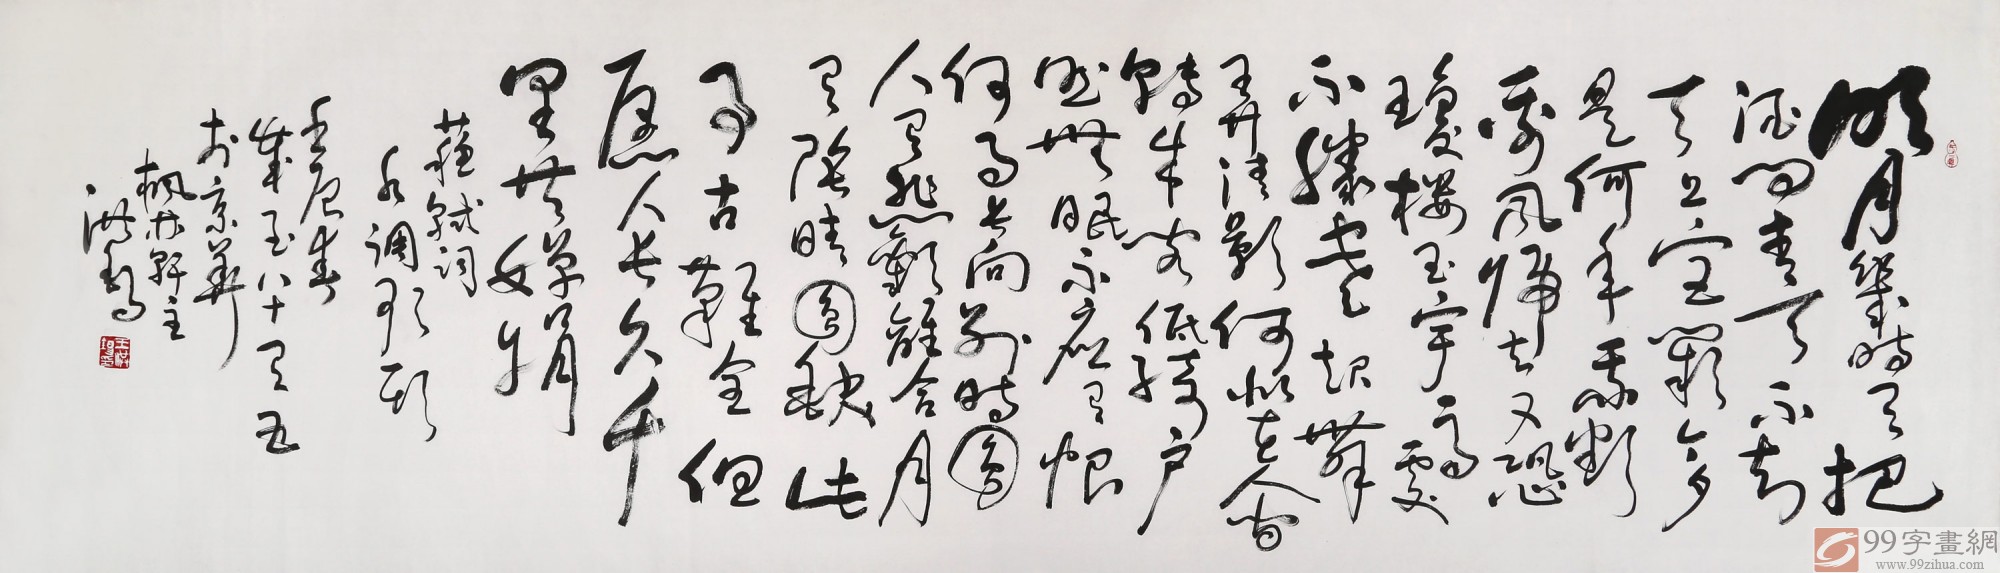 明月幾時有把
酒問青天不知
天上宮闕今夕
是何年我欲
乘風歸去又恐
瓊樓玉宇高處
不勝寒起舞
弄清影何似在人間
轉朱閣低綺户
照無眠不應有恨
何事長向别時圓
人有悲歡離合月
有陰晴圓缺此
事古難全但
願人長久千
里共嬋娟
蘇軾詞
水調歌頭
壬辰春
歲至八十又五
於京華
楓林軒主
洪
99字畫網
www.99zihua.com